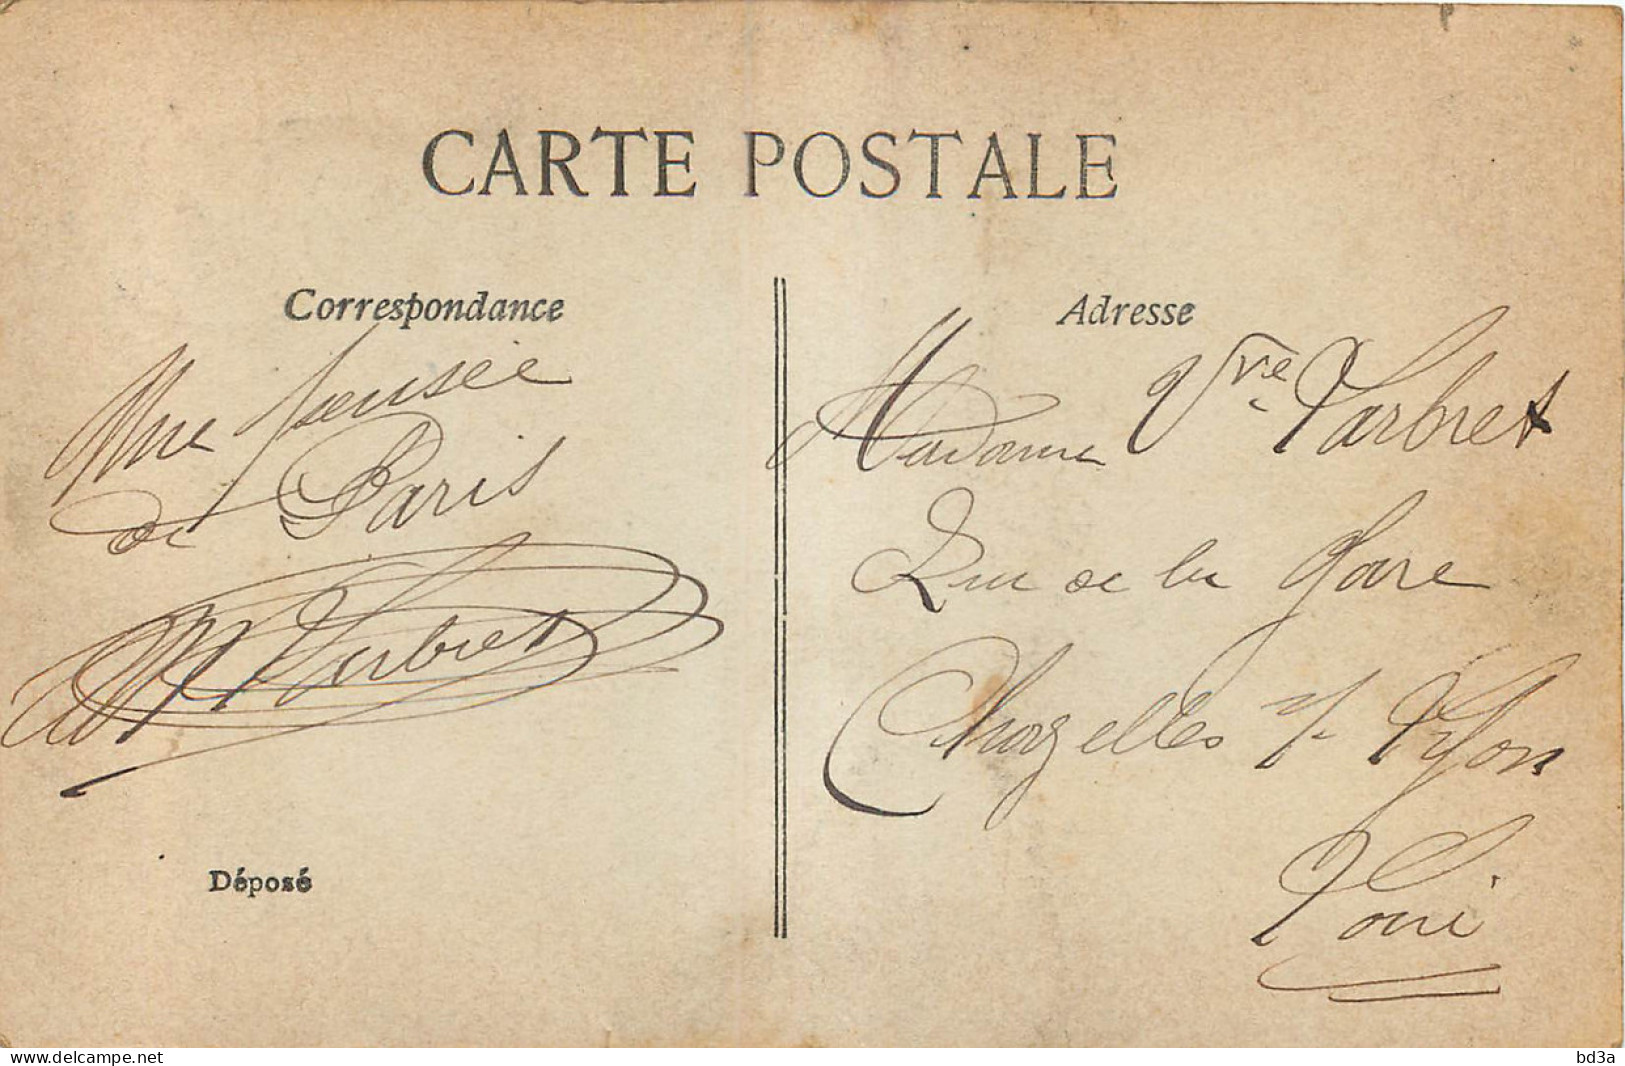 CARTE POSTALE
Correspondance
Une pensée
de Paris
M Tarbret
Déposé
Adresse
Madame Vve Tarbret
Rue de la Gare
Chazelles s/- Lyon
Loire
www.delcampe.net
bd3a